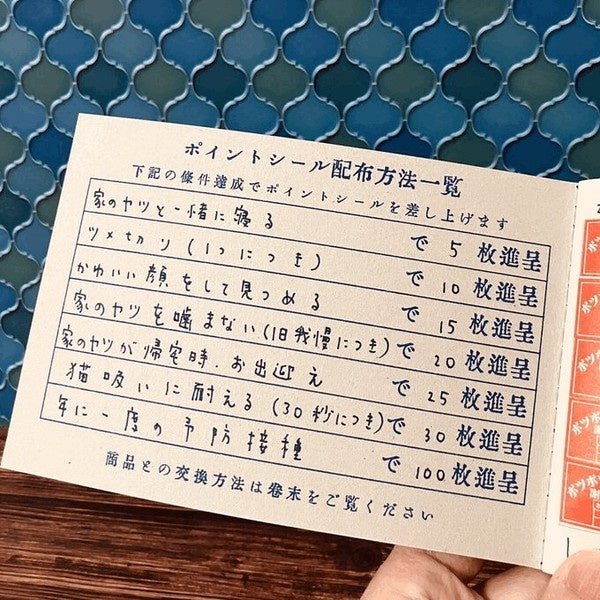 ポイントシール配布方法一覧
下記の條件達成でポイントシールを差し上げます
家のヤツと一緒に寝る で 5 枚進呈
ツメ切り(1つにつき) で 10 枚進呈
かわいい顔をして見つめる で 15 枚進呈
家のヤツを噛まない(1日我慢につき) で 20 枚進呈
家のヤツが帰宅時、お出迎え で 25 枚進呈
猫吸いに耐える(30秒につき) で 30 枚進呈
年に一度の予防接種 で 100 枚進呈
商品との交換方法は巻末をご覧ください